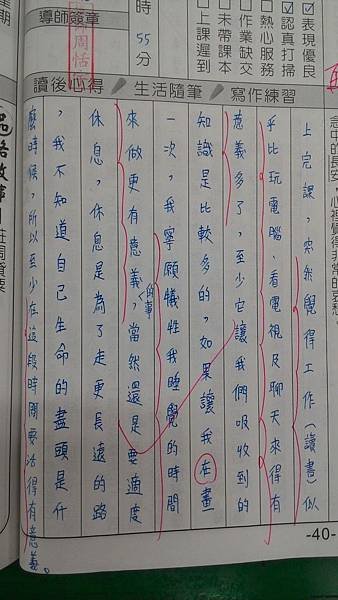 ☑表現優良
☑認真打掃
□熱心服務
□作業缺交
□未帶課本
□上課遲到
時55分
導師簽章
周恬
讀後心得 生活隨筆 寫作練習
上完課,突然覺得工作(讀書)似
乎比玩電腦、看電視及聊天來得有
意義多了,至少它讓我們吸收到的
知識是比較多的,如果讓我在畫
一次,我寧願犧牲我睡覺的時間
來做更有意義的事,當然還是要適度
休息,休息是為了走更長遠的路
,我不知道自己生命的盡頭是什
麼時候,所以至少在這段時間要活得有意義。
-40-
莊周貸粟